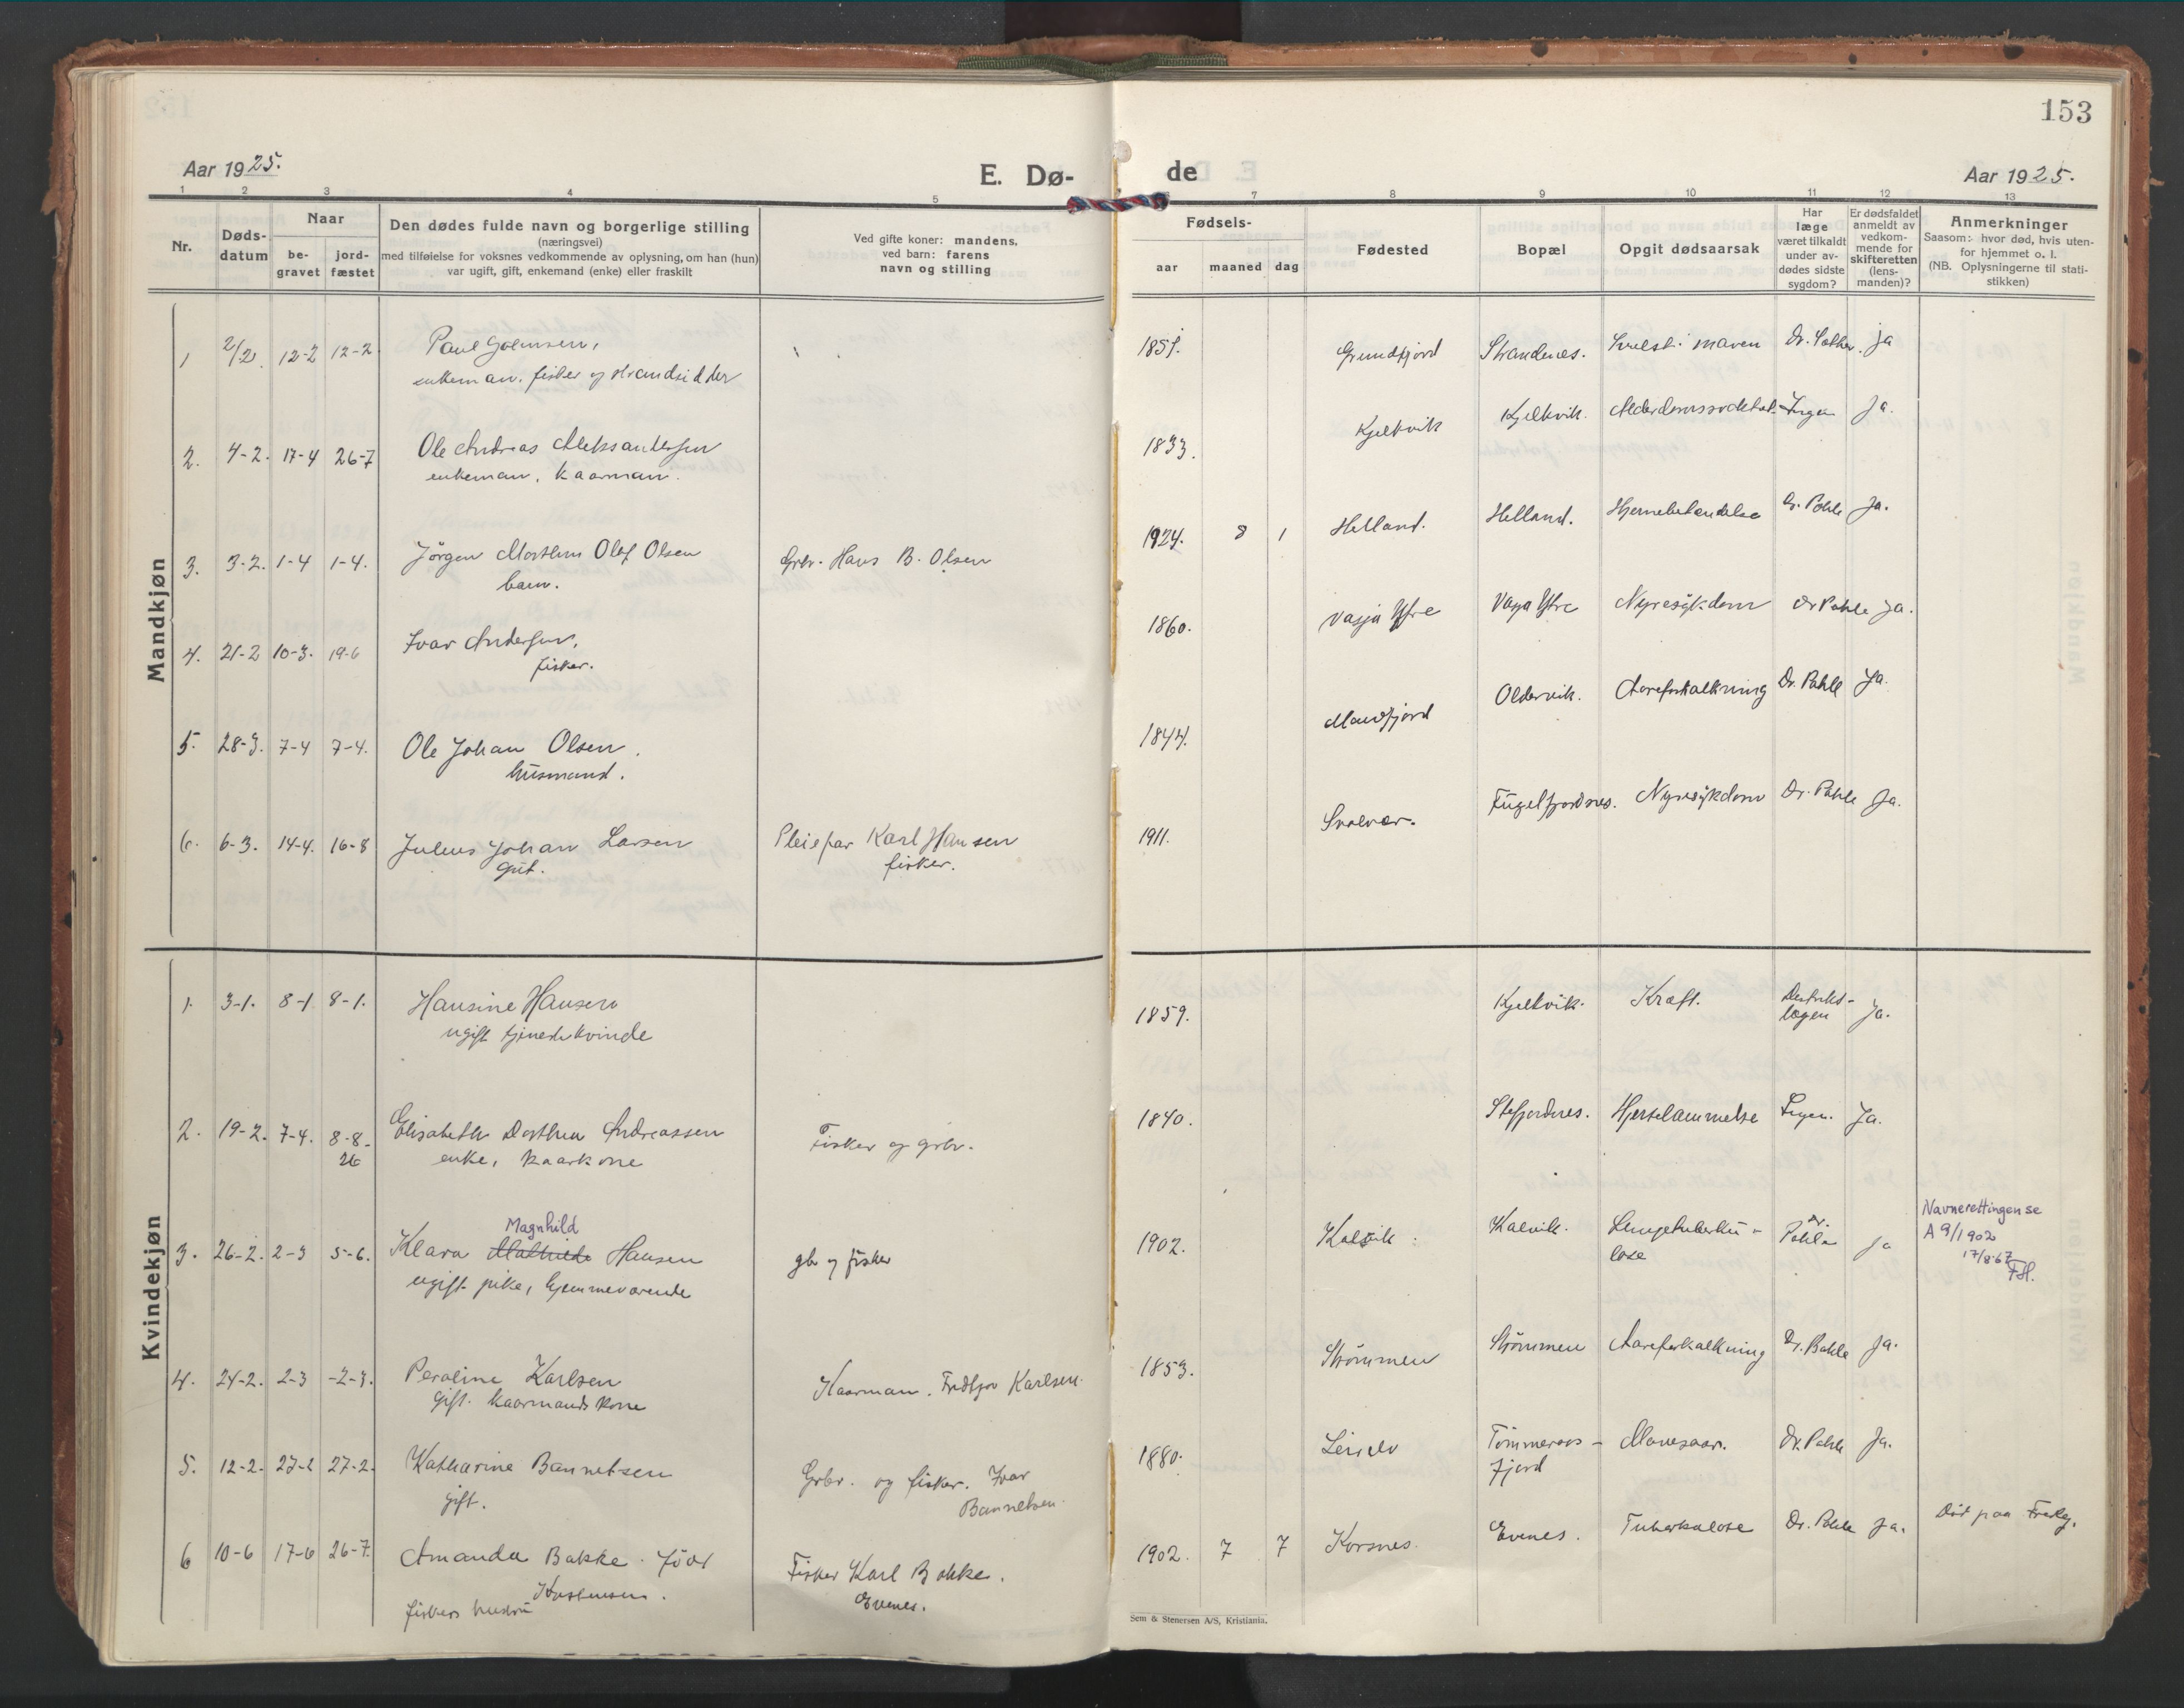 153
Aar 1925.
E. Dø-
de
Aar 1925.
1 2 3 4 5 7 8 9 10 11 12 13
Nr.
Døds-
datum
Naar
be-
gravet
jord-
fæstet
Den dødes fulde navn og borgerlige stilling
(næringsvei)
med tilføielse for voksnes vedkommende av oplysning, om han (hun)
var ugift, gift, enkemand (enke) eller fraskilt
Ved gifte koner: mandens,
ved barn: farens
navn og stilling
Fødsels-
aar maaned dag
Fødested
Bopæl
Opgit dødsaarsak
Har
læge
været tilkaldt
under av-
dødes sidste
sygdom?
Er dødsfaldet
anmeldt av
vedkom-
mende for
skifteretten
(lens-
manden)?
Anmerkninger
Saasom: hvor død, hvis uten-
for hjemmet o. l.
(NB. Oplysningerne til stati-
stikken)
Mandkjøn
1 2/2. 12-2 12-2 Paul 1851. Grundfjord Strandenes. Kræft i maven Dr. ja
enkeman. fisker og strandsidder
2. 4-2. 17-4 26-7 Ole Andreas Aleksandersen 1833. Kjelkvik Kjelkvik. Ingen Ja.
enkeman, kaarman.
3. 3-2. 1-4 1-4. Jörgen Morthen Olaf Olsen Grbr. Hans B. Olsen 1924. 8 1 Helland. Helland. Hjernebetændelse Dr. Pahle Ja.
barn.
4. 21-2 10-3. 19-6 Ivar Andersen, 1860. Vasja Yfre Nyresykdom Dr Pahle Ja.
fisker.
5. 28-3. 7-4 7-4. Ole Johan Olsen. 1844. Mansfjord Oldervik. Aareforkalkning Dr. Pahle Ja.
husmand.
6. 6-3. 14-4. 16-8 Julius Johan Larsen Pleiefar Karl Hansen 1911. Svolvær. Fugelfjordnes. Nyresykdom Dr. Pahle Ja.
gut. fisker.
Kvindekjøn
1. 3-1. 8-1 8-1. Hansine Hansen 1859. Kjelkvik. Kræft. Distrikts-
lægen Ja.
ugift tjenestekvinde
2. 19-2. 7-4. 8-8-
26
Elisabeth Dorthea Andreassen Fisker og grbr. 1840. Stefjordnes. Hjertelammelse Ingen. Ja.
enke, kaarkone
Magnhild
3. 26-2. 2-3 5-6. Klara Mathilde Hansen gb og fisker 1902. Kalvik. Kalvik. Lungetuberku-
lose Dr.
Pahle ja
ugift pike, hjemmeværende
Navnerettingen se
A 9/1902
17/8-67
FH.
4. 24-2. 2-3 -2-3. Peroline Karlsen Kaarman. Fridtjov Karlsen. 1853. Strömmen Strömmen Aareforkalkning Dr. Pahle Ja.
gift. kaarmands kone
5. 12-2. 27-2 27-2. Katharine Bannetsen Grbr. og fisker. Ivar
Bannetsen. 1880. Leirelv Tömmeraas-
fjord Mavesaar. Dr. Pahle Ja.
gift.
6 10-6 17-6 26-7. Amanda Bakke. född
Kristensen. Fisker Karl Bakke.
Evenes. 1902. 7 7 Korsnes. Evenes. Tuberkulose Dr. Pahle Ja. Död paa
fiskers hustru
Sem & Stenersen A/S, Kristiania.